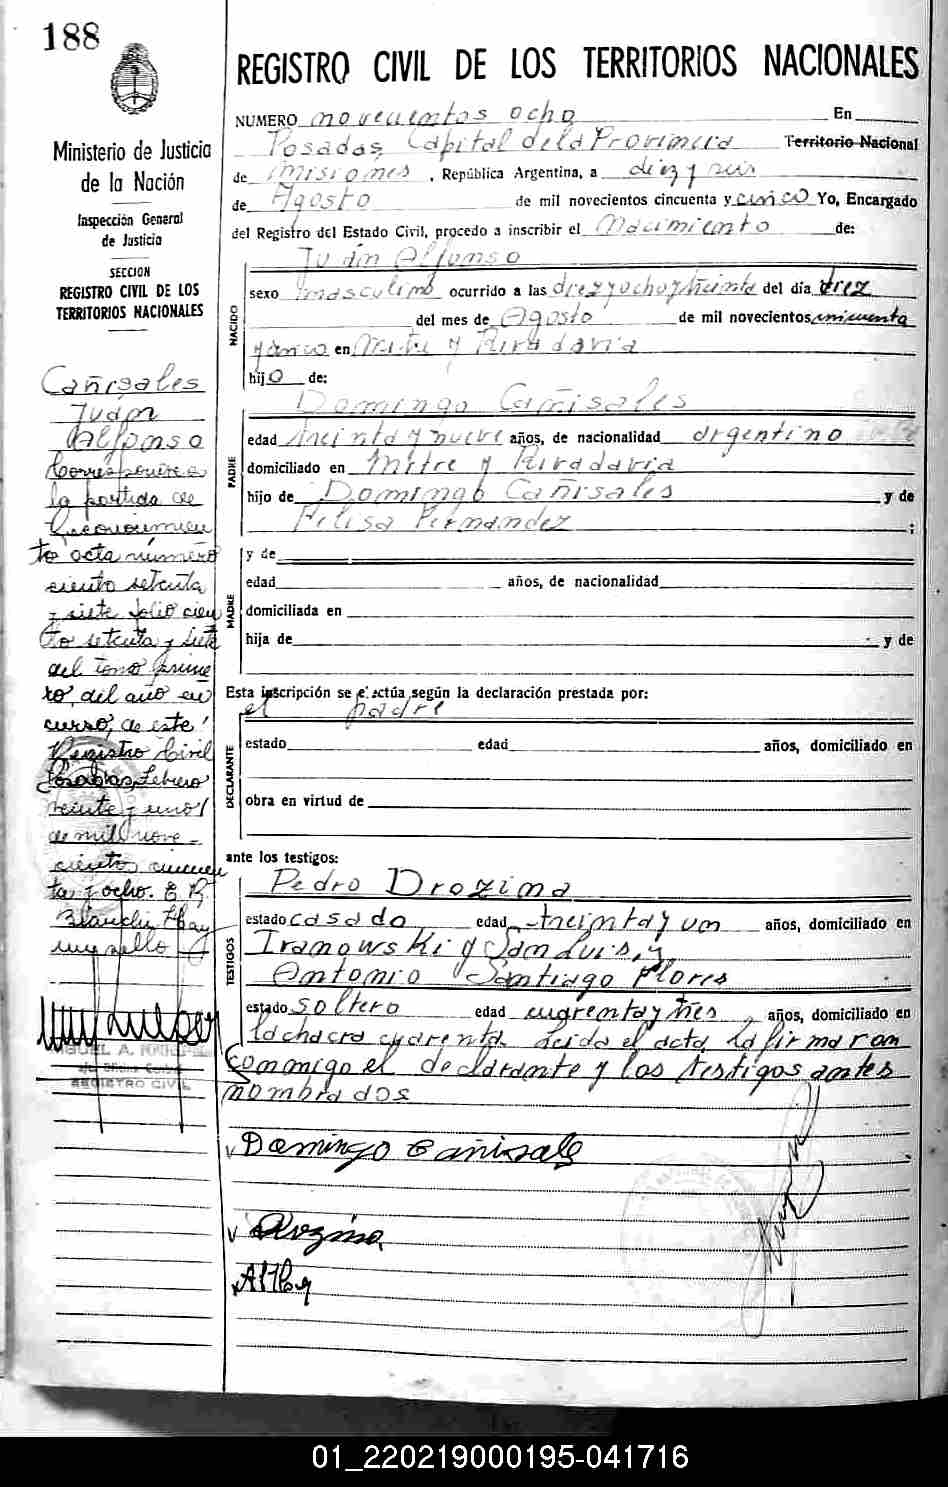 188
Ministerio de Justicia
de la Nación
Inspección General
de Justicia
SECCION
REGISTRO CIVIL DE LOS
TERRITORIOS NACIONALES
Cañisales
Juan
Alfonso
Corresponde a
la partida de
Reconocimien
to acta número
ciento setenta
y siete folio cien
to setenta y siete
del tomo prime
ro, del año en
curso, de este
Registro Civil
Posadas, Febrero
veinte y uno
de mil nove
cientos cincuen
ta y ocho. E R
MIGUEL A.
REGISTRO CIVIL
REGISTRO CIVIL DE LOS TERRITORIOS NACIONALES
NUMERO novecientos ocho En
Posadas, Capital de la Provincia Territorio Nacional
de Misiones, República Argentina, a diez y seis
de Agosto de mil novecientos cincuenta y cinco Yo, Encargado
del Registro del Estado Civil, procedo a inscribir el Nacimiento de:
NACIDO
Juan Alfonso
sexo masculino ocurrido a las diez y ocho y treinta del día diez
del mes de Agosto de mil novecientos cincuenta
y cinco en Mitre y Rivadavia
hijo de:
PADRE
Domingo Cañisales
edad treinta y nueve años, de nacionalidad argentino
domiciliado en Mitre y Rivadavia
hijo de Domingo Cañisales y de
Felisa Fernandez ;
MADRE
y de
edad años, de nacionalidad
domiciliada en
hija de y de
Esta inscripción se efectúa según la declaración prestada por:
el padre
DECLARANTE
estado edad años, domiciliado en
obra en virtud de
ante los testigos:
TESTIGOS
Pedro Drozina
estado casado edad treinta y un años, domiciliado en
Iranowski y San Luis, y
Antonio Santiago Flores
estado soltero edad cuarenta y tres, años, domiciliado en
la chacra cuarenta. Leida el acta, la firmaron
conmigo el declarante y los testigos antes
nombrados
Domingo Cañisales
Drozina
01_220219000195-041716